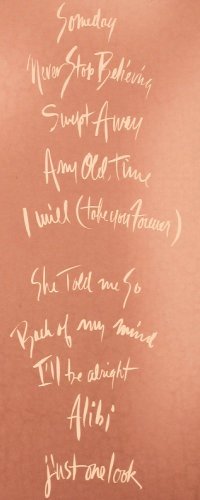 Someday
Never Stop Believing
Swept Away
Any Old Time
I will (take you Forever)
She Told me So
Back of my mind
I'll be alright
Alibi
just one look